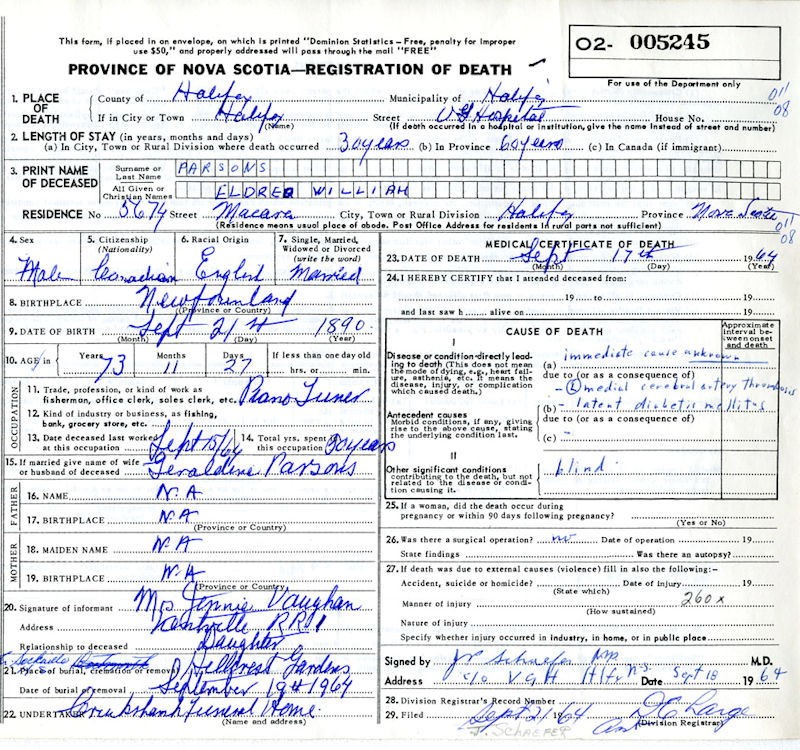 This form, if placed in an envelope, on which is printed "Dominion Statistics – Free, penalty for improper
use $50," and properly addressed will pass through the mail "FREE"
O2- 005245
PROVINCE OF NOVA SCOTIA—REGISTRATION OF DEATH
For use of the Department only
1. PLACE OF DEATH { County of Halifax Municipality of Halifax 011
If in City or Town Halifax Street V G Hospital House No. 08
(Name) (If death occurred in a hospital or institution, give the name instead of street and number)
2. LENGTH OF STAY (in years, months and days)
(a) In City, Town or Rural Division where death occurred 30 years (b) In Province 60 years (c) In Canada (if immigrant)
3. PRINT NAME OF DECEASED { Surname or Last Name PARSONS
All Given or Christian Names ELDRED WILLIAM
RESIDENCE No 5674 Street Macara City, Town or Rural Division Halifax Province Nova Scotia
(Residence means usual place of abode. Post Office Address for residents in rural parts not sufficient) 011
08
4. Sex 5. Citizenship (Nationality) 6. Racial Origin 7. Single, Married, Widowed or Divorced (write the word)
Male Canadian English Married
8. BIRTHPLACE Newfoundland
(Province or Country)
9. DATE OF BIRTH Sept 21st 1890
(Month) (Day) (Year)
10. AGE Years 73 Months 11 Days 27 If less than one day old
hrs. or min.
OCCUPATION
11. Trade, profession, or kind of work as
fisherman, office clerk, sales clerk, etc. Piano Tuner
12. Kind of industry or business, as fishing,
bank, grocery store, etc.
13. Date deceased last worked at this occupation Sept 15/64 14. Total yrs. spent in this occupation 50 years
15. If married give name of wife or husband of deceased Geraldine Parsons
FATHER
16. NAME N.A
17. BIRTHPLACE N.A
(Province or Country)
MOTHER
18. MAIDEN NAME N.A
19. BIRTHPLACE N.A
(Province or Country)
20. Signature of informant Mrs Jennie Vaughan
Address RR1
Relationship to deceased Daughter
21. Place of burial, cremation or removal Hillcrest Gardens
Date of burial or removal September 19th 1964
22. UNDERTAKER Cruikshank Funeral Home
(Name and address)
MEDICAL CERTIFICATE OF DEATH
23. DATE OF DEATH Sept 17th 1964
(Month) (Day) (Year)
24. I HEREBY CERTIFY that I attended deceased from:
19 to 19
and last saw h alive on 19
CAUSE OF DEATH
Approximate interval between onset and death
I
Disease or condition directly leading to death (This does not mean
the mode of dying, e.g., heart failure, asthenia, etc. It means the
disease, injury, or complication
which caused death.)
(a) immediate cause unknown
due to (or as a consequence of)
- (L) medial cerebral artery thrombosis
Antecedent causes
Morbid conditions, if any, giving
rise to the above cause, stating
the underlying condition last.
(b) - latent diabetes mellitus
due to (or as a consequence of)
(c) -
II
Other significant conditions
contributing to the death, but not
related to the disease or condition causing it.
blind.
25. If a woman, did the death occur during
pregnancy or within 90 days following pregnancy?
(Yes or No)
26. Was there a surgical operation? no Date of operation 19
State findings Was there an autopsy?
27. If death was due to external causes (violence) fill in also the following:–
Accident, suicide or homicide? Date of injury 19
(State which)
Manner of injury 260x
(How sustained)
Nature of injury
Specify whether injury occurred in industry, in home, or in public place
Signed by Schaefer M.D.
Address c/o V.G.H Hfx N.S. Date Sept 18 1964
28. Division Registrar's Record Number
29. Filed Sept 21/64 D E Large
(Division Registrar)
J. SCHAEFER